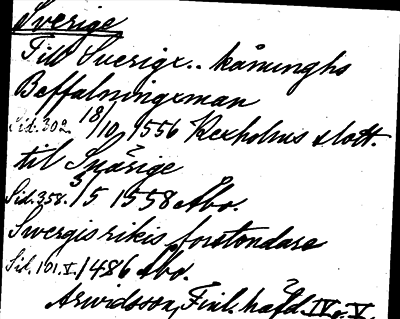 Sverige
Till Suerigx.. kåninghs
Beffalningxman
Sid. 302. 18/10 1556 Rexholms slott.
til Suärige
Sid. 358. 3/5 1558 Åbo.
Swergis rikis forstondare
Sid. 101. V. /1486 Åbo.
Arwidsson, Finl. häfd. IV o. V.